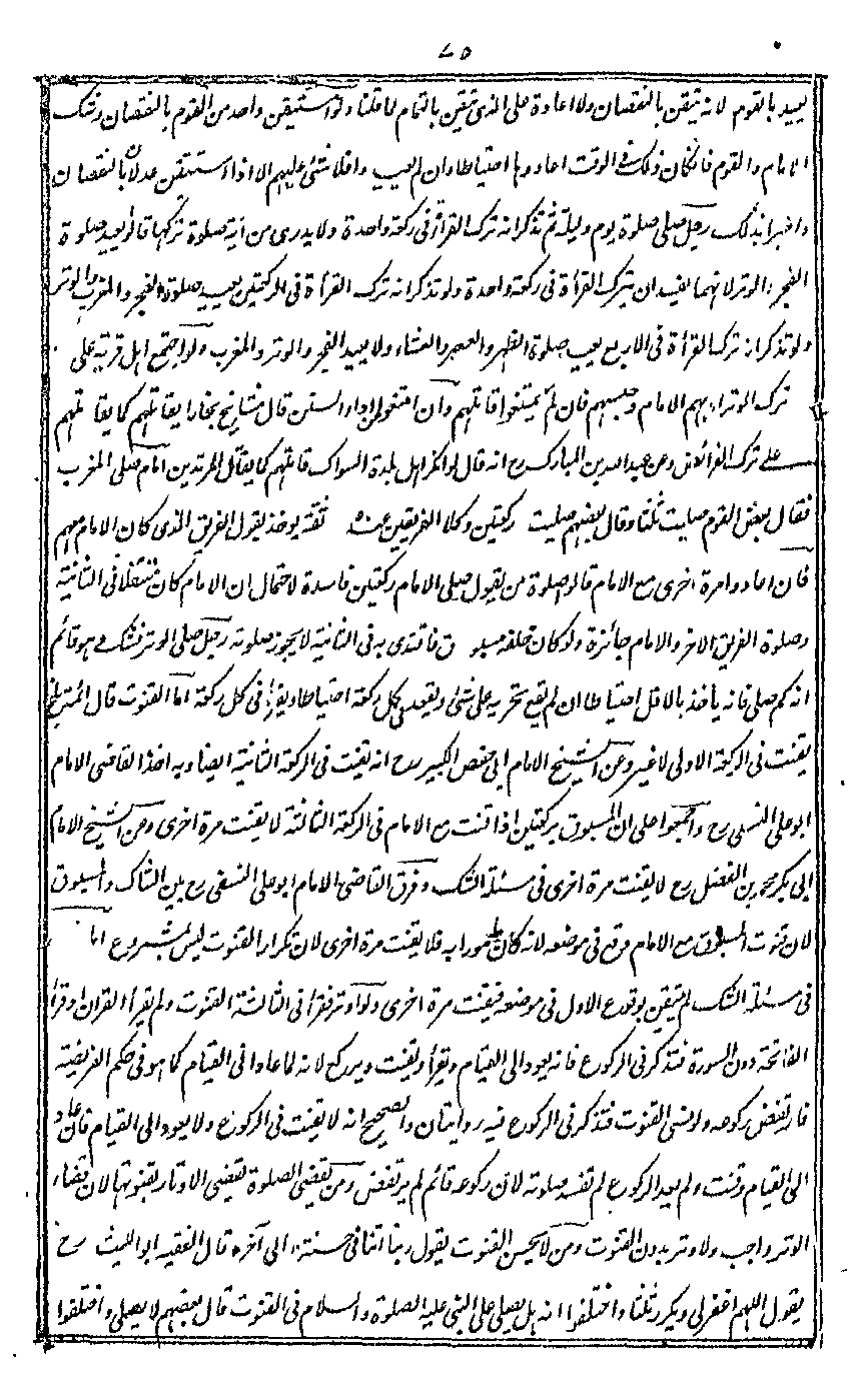 ٧٥
يعيد بالقوم لانه تيقن بالنقصان ولا اعادة على الذى تيقن بالتمام لما قلنا ولو استيقن واحد من القوم بالنقصان وشك
الامام والقوم فان كان ذلك فى الوقت اعادوها احتياطا وان لم يعيدوا فلا شئ عليهم الا اذا استيقن عدلان بالنقصان
واخبرا بذلك رجل صلى صلوة يوم وليلة ثم تذكر انه ترك القرأة فى ركعة واحدة ولا يدرى من اية صلوة تركها قالوا يعيد صلوة
الفجر والوتر لانهما يفسدان بترك القرأة فى ركعة واحدة ولو تذكر انه ترك القرأة فى الركعتين يعيد صلوة الفجر والمغرب والوتر
ولو تذكر انه ترك القرأة فى الاربع يعيد صلوة الظهر والعصر والعشاء ولا يعيد الفجر والوتر والمغرب ولو اجتمع اهل قرية على
ترك الوتر ادبهم الامام وحبسهم فان لم يمتنعوا قاتلهم وان امتنعوا عن اداء السنن قال مشايخ بخارا يقاتلهم كما يقاتلهم
على ترك الفرائض وعن عبد الله بن المبارك رح انه قال لو انكر اهل بلدة السواك قاتلهم كما يقاتل المرتدين امام صلى المغرب
فقال بعض القوم صليت ثلثا وقال بعضهم صليت ركعتين وكلا الفريقين عنده ثقة يوخذ بقول الفريق الذى كان الامام معهم
فان اعادوا مرة اخرى مع الامام قالوا صلوة من يقول صلى الامام ركعتين فاسدة لاحتمال ان الامام كان متنفلا فى الثانية
وصلوة الفريق الاخر والامام جائزة ولو كان خلفه مسبوق فاقتدى به فى الثانية لا يجوز صلوته رجل صلى الوتر فشك وهو قائم
انه كم صلى فانه يأخذ بالاقل احتياطا ان لم يقع تحريه على شئ ويقعد فى كل ركعة احتياطا ويقرأ فى كل ركعة اما القنوت قال ائمة بلخ
يقنت فى الركعة الاولى لا غير وعن الشيخ الامام ابى حفص الكبير رح انه يقنت فى الركعة الثانية ايضا وبه اخذ القاضى الامام
ابو على النسفى رح واجمعوا على ان المسبوق بركعتين اذا قنت مع الامام فى الركعة الثالثة لا يقنت مرة اخرى وعن الشيخ الامام
ابى بكر محمد بن الفضل رح لا يقنت مرة اخرى فى مسئلة الشك وفرق القاضى الامام ابو على النسفى رح بين الشاك والمسبوق
لان قنوت المسبوق مع الامام وقع فى موضعه لانه كان مأمورا به فلا يقنت مرة اخرى لان تكرار القنوت ليس بمشروع اما
فى مسئلة الشك لم يتيقن بوقوع الاول فى موضعه فيقنت مرة اخرى ولو اوتر فقرأ فى الثالثة القنوت ولم يقرأ القران او قرأ
الفاتحة دون السورة فتذكر فى الركوع فانه يعود الى القيام ويقرأ ويقنت ويركع لانه لما عاد الى القيام كما هو فى حكم الفريضة
فارتفض ركوعه ولو نسى القنوت فتذكر فى الركوع فيه روايتان والصحيح انه لا يقنت فى الركوع ولا يعود الى القيام فان عاد
الى القيام وقنت ولم يعد الركوع لم تفسد صلوته لان ركوعه قائم لم يرتفض ومن يقضى الصلوة يقضى الاوتار بقنوتها لان قضاء
الوتر واجب ولا وتر بدون القنوت ومن لا يحسن القنوت يقول ربنا اتنا فى حسنة الى آخره قال الفقيه ابو الليث رح
يقول اللهم اغفر لى ويكرر ثلثا واختلفوا انه هل يصلى على النبى عليه الصلوة والسلام فى القنوت قال بعضهم لا يصلى واختلفوا